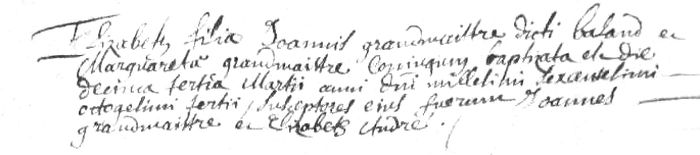 Elizabeth filia Joannis grandmaittre dicti baland et
Marguareta grandmaittre Coniugum baptizata est die
decima tertia Martii anni dni millesimi sexentesimi
octogesimi tertii susceptores eius fuerunt Joannes
grandmaittre et Elizabeth André .